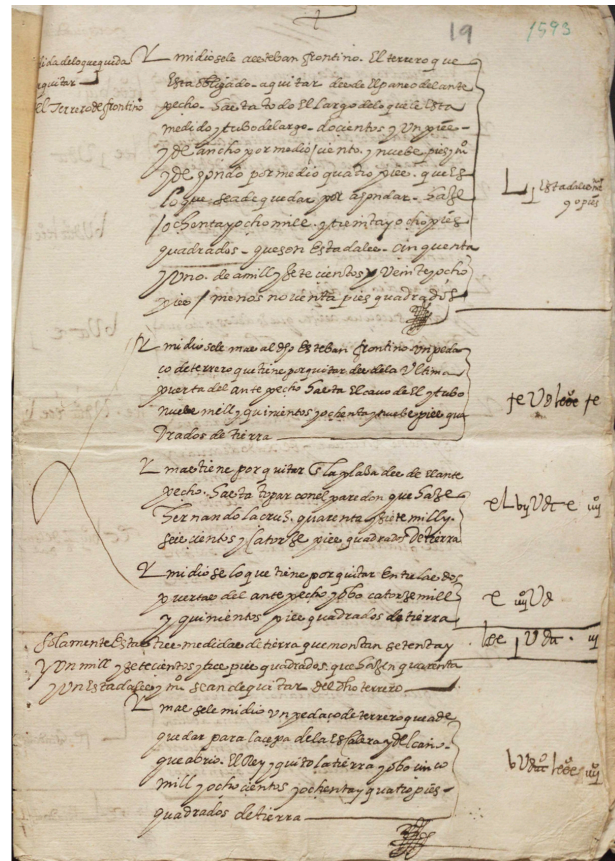 19 1593
midiosele a esteban frontino. El terrero que
Esta obligado a quitar desde El paneo del ante
pecho. hasta todo El largo de lo que le Esta
medido y tubo de largo. docientos y Un pies
y de ancho por medio ciento. y nuebe pies y mº
y de fondo por medio quatro pies. que Es
lo que se a de quedar por afondar. haze
ochenta y ocho mill. y treinta y ocho pies
quadrados. que son Estadales. cinquenta
y uno. de a mill y sete cientos y Veinte y ocho
pies menos noventa pies quadrados
El Terrero de frontino
midiosele mas al dho Esteban frontino. un peda
co de terrero que tiene por quitar desde la Ultima
puerta del ante pecho hasta El cavo de El y tubo
nuebe mill y quinientos y ochenta y nuebe pies qua
drados de tierra
mas tiene por quitar En la plaça desde El ante
pecho. hasta topar con el paredon que haze
hernando la cruz. quarenta y siete mill y.
seiscientos y catorze pies quadrados de tierra
midiose lo que tiene por quitar Entre las dos
puertas del ante pecho y obo catorze mill
y quinientos pies quadrados de tierra
Solamente Estas tres medidas de tierra que montan setenta y
y Un mill y setecientos y tres pies quadrados. que hazen quarenta
y un Estadales y mº se an de quitar del dho terrero
mas se le midio un pedaço de terrero que a de
quedar para la cepa de la Escalera y del can
que abrio. El Rey y quito la tierra y obo cinco
mill y ochocientos y ochenta y quatro pies
quadrados de tierra